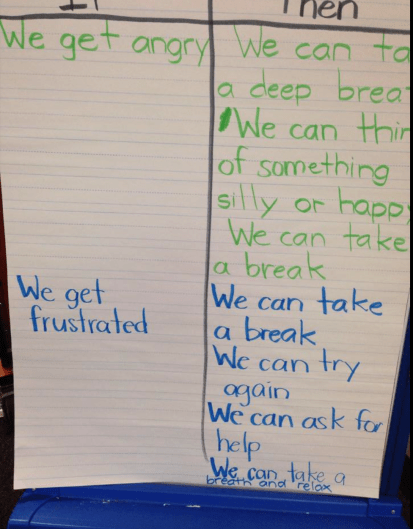 If Then
We get angry We can ta
a deep brea
We can thin
of something
silly or happ
We can take
a break
We get We can take
frustrated a break
We can try
again
We can ask for
help
We can take a
breath and relax